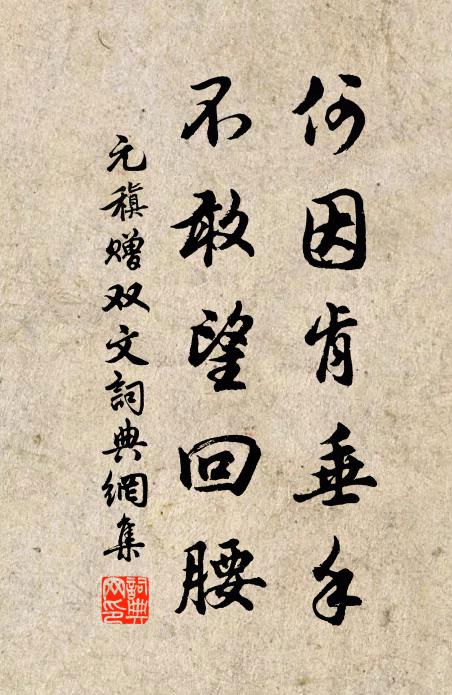 何因肯垂手
不敢望回腰
元稹赠双文詞典網集
詞典网印